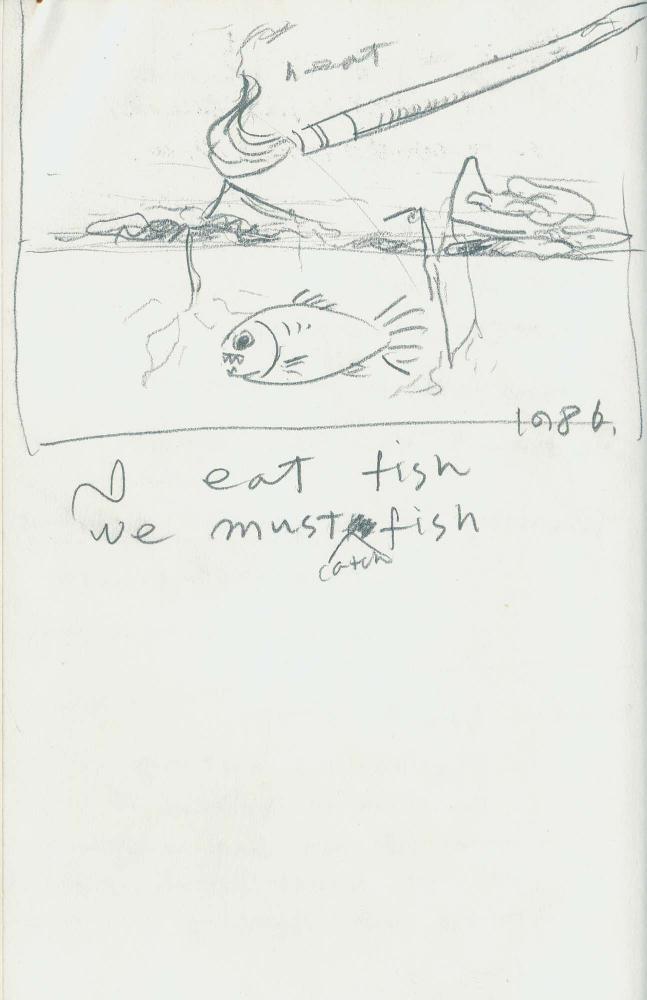 heat
1986.
eat fish
we must catch fish